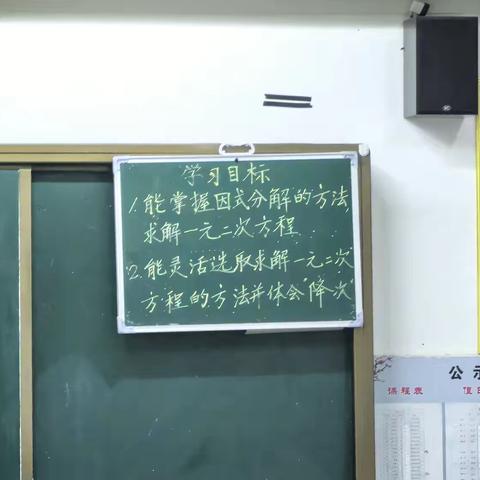 学习目标
1.能掌握因式分解的方法,
求解一元二次方程.
2.能灵活选取求解一元二次
方程的方法并体会"降次"
公示
课程表
值日